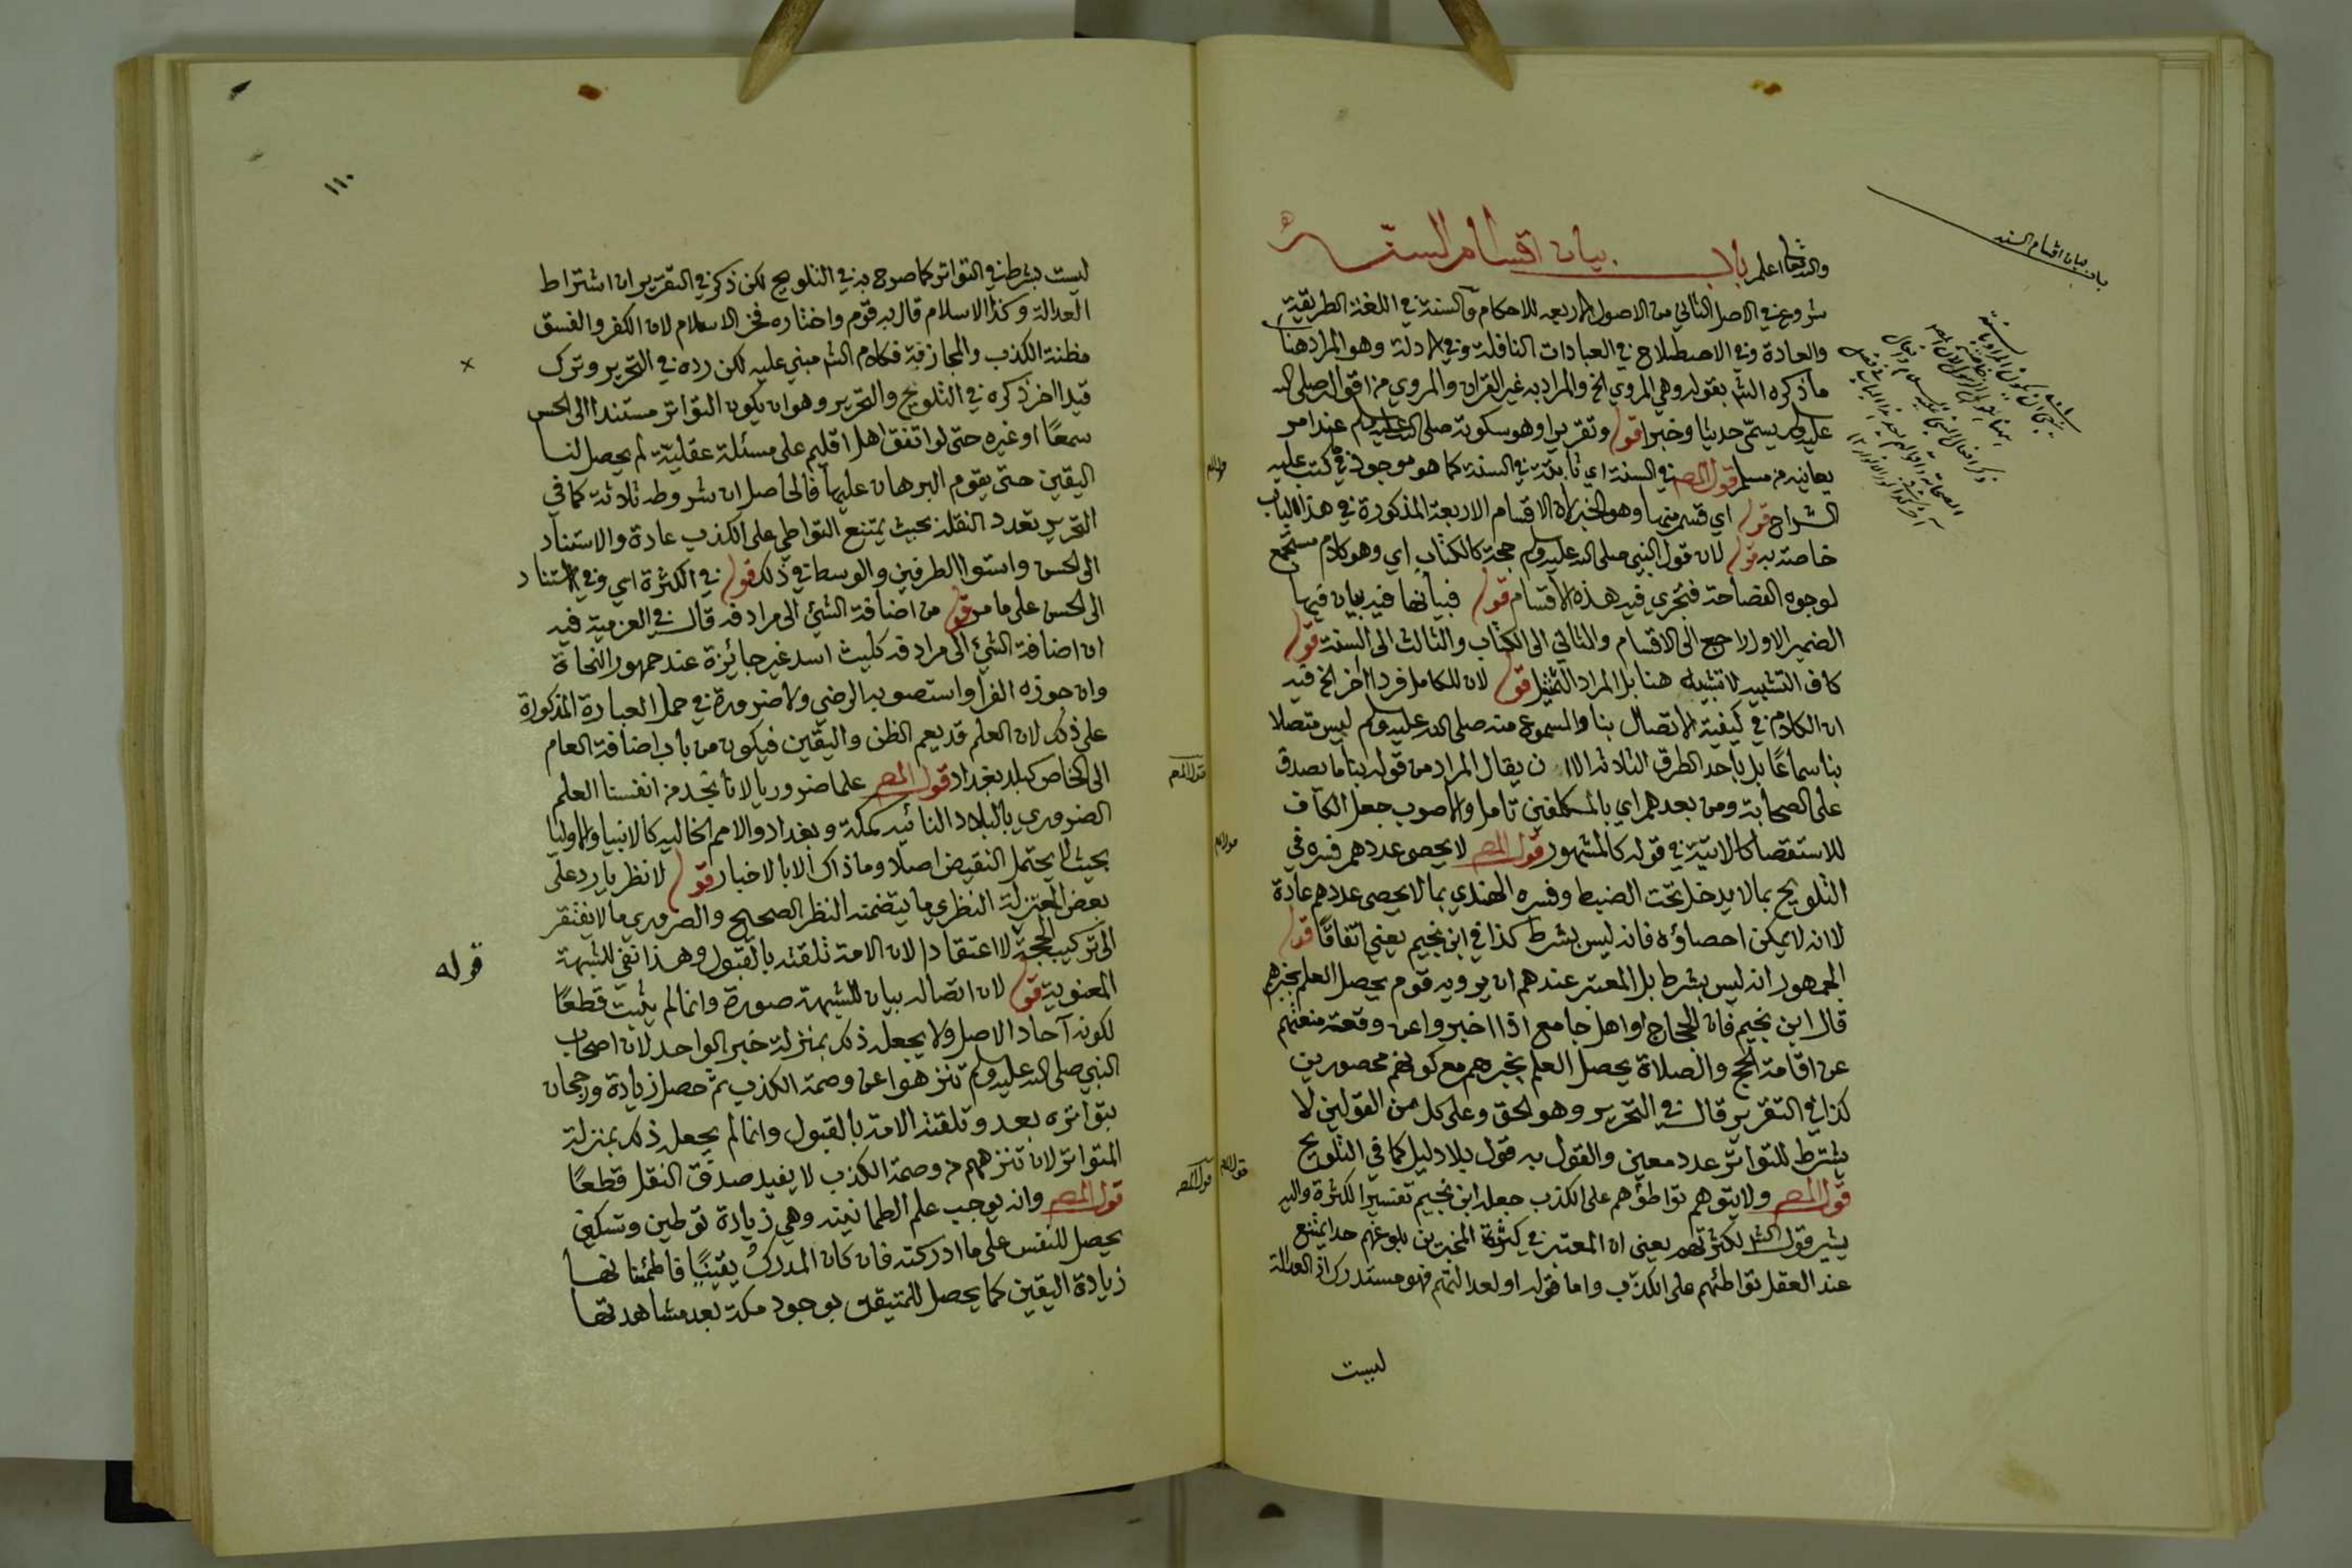 والله تعالى اعلم باب بيان اقسام السنة
شروع في الاصل الثاني من الاصول الاربعه للاحكام والسنة في اللغة الطريقة
والعادة وفي الاصطلاح في العبادات النافلة وفي الادلة وهو المراد هنا
ما ذكره الش بقوله وهي المروي الخ والمراد به غير القران والمروي من اقواله صلى الله
عليه وسلم يسمّى حديثا وخبرا قوله وتقريرا وهو سكوته صلى الله عليه وسلم عند امر
يعاينه من مسلم قول المص في السنة اي ثابتة في السنة كما هو موجود في كتب عليه
الشراح قوله اي قسم منها وهو الخبر لان الاقسام الاربعة المذكورة في هذا الباب
خاصة به قوله لان قول النبي صلى الله عليه وسلم حجة كالكتاب اي وهو كلام مستجمع
لوجوه الفصاحة فتجري فيه هذه الاقسام قوله فبيانها فيه بيان فيها
الضمير الاول راجع الى الاقسام والثاني الى الكتاب والثالث الى السنة قوله
كاف التشبيه لا تشبيه هنا بل المراد التمثيل قوله لان للكامل فردا اخر الخ فيه
ان الكلام في كيفية الاتصال بنا والمسموع منه صلى الله عليه وسلم ليس متصلا
بنا سماعًا بل باحد الطرق الثلاثة الا ان يقال المراد من قوله بنا ما يصدق
على الصحابة ومن بعدهم اي بالمكلفين تامل والاصوب جعل الكاف
للاستقصا كالاتيّة في قوله كالمشهور قول المص لا يحصى عددهم فسره في
التلويح بما لا يدخل تحت الضبط وفسره الهندي بما لا يحصى عددهم عادة
لا انه لا يمكن احصاؤه فانه ليس بشرط كذا في ابن نجيم يعني اتفاقًا قوله
الجمهور انه ليس بشرط بل المعتبر عندهم ان يرويه قوم يحصل العلم بخبرهم
قال ابن نجيم فان الحجاج او اهل جامع اذا اخبروا عن وقعة منعتهم
عن اقامة الحج والصلاة يحصل العلم بخبرهم مع كونهم محصورين
كذا في التقرير قال في التحرير وهو الحق وعلى كل من القولين لا
يشترط للتواتر عدد معين والقول به قول بلا دليل كما في التلويح
قول المص ولا يتوهم تواطؤهم على الكذب جعله ابن نجيم تفسيرا لكثرة واليه
يشير قول الش لكثرتهم يعني ان المعتبر في كثرة المخبرين بلوغهم حدا يمتنع
عند العقل تواطئهم على الكذب واما قوله او لعدالتهم فهو مستدرك اذ العدالة
ليست
باب بيان اقسام السنه
١١٠
ليست بشرط في التواتر كما صرح به في التلويح لكن ذكر في التقرير ان اشتراط
العدالة وكذا الاسلام قال به قوم واختاره فخر الاسلام لان الكفر والفسق
مظنة الكذب والمجازفة فكلام الش مبني عليه لكن رده في التحرير وترك
قيدا اخر ذكره في التلويح والتحرير وهو ان يكون التواتر مستندا الى الحس
سمعًا او غيره حتى لو اتفق اهل اقليم على مسئلة عقليّة لم يحصل لنا
اليقين حتى يقوم البرهان عليها فالحاصل ان شروطه ثلاثة كما في
التحرير تعدد النقلة بحيث يمتنع التواطي على الكذب عادة والاستناد
الى الحس واستوا الطرفين والوسط في ذلك قوله في الكثرة اي وفي الاستناد
الى الحس على ما مر قوله من اضافة الشئ الى مرادفه قال في العزمية فيه
ان اضافة الشئ الى مرادفه كليث اسد غير جائزة عند جمهور النحاة
وان جوزه الفرا واستصوبه الرضي ولا ضرورة في حمل العبارة المذكورة
على ذلك لان العلم قد يعم الظن واليقين فيكون من باب اضافة العام
الى الخاص كبلد بغداد قول المص علما ضروريا لانا نجد من انفسنا العلم
الضروري بالبلاد النائيه كمكة وبغداد والامم الخاليه كالانبيا والاوليا
بحيث لا يحتمل النقيض اصلا وما ذاك الا بالاخبار قوله لا نظريا رد على
بعض المعتزلة النظري ما يتضمنه النظر الصحيح والضروري ما لا يفتقر
الى تركيب الحجة لا اعتقادا لان الامة تلقته بالقبول وهذا نفي للشبهة
المعنوية قوله لان اتصاله بيان للشبهة صورة وانما لم يثبت قطعًا
لكونه آحاد الاصل ولا يجعل ذلك بمنزلة خبر الواحد لان اصحاب
النبي صلى الله عليه وسلم تنزهوا عن وصمة الكذب ثم حصل زيادة ورجحان
بتواتره بعد وتلقته الامة بالقبول وانما لم يجعل ذلك بمنزلة
المتواتر لان تنزههم من وصمة الكذب لا يفيد صدق النقل قطعًا
قول المص وانه يوجب علم الطمانينه وهي زيادة توطين وتسكين
يحصل للنفس على ما ادركته فان كان المدرك يقينيًا فاطمئنانها
زيادة اليقين كما يحصل للمتيقن بوجود مكة بعد مشاهدتها
قوله